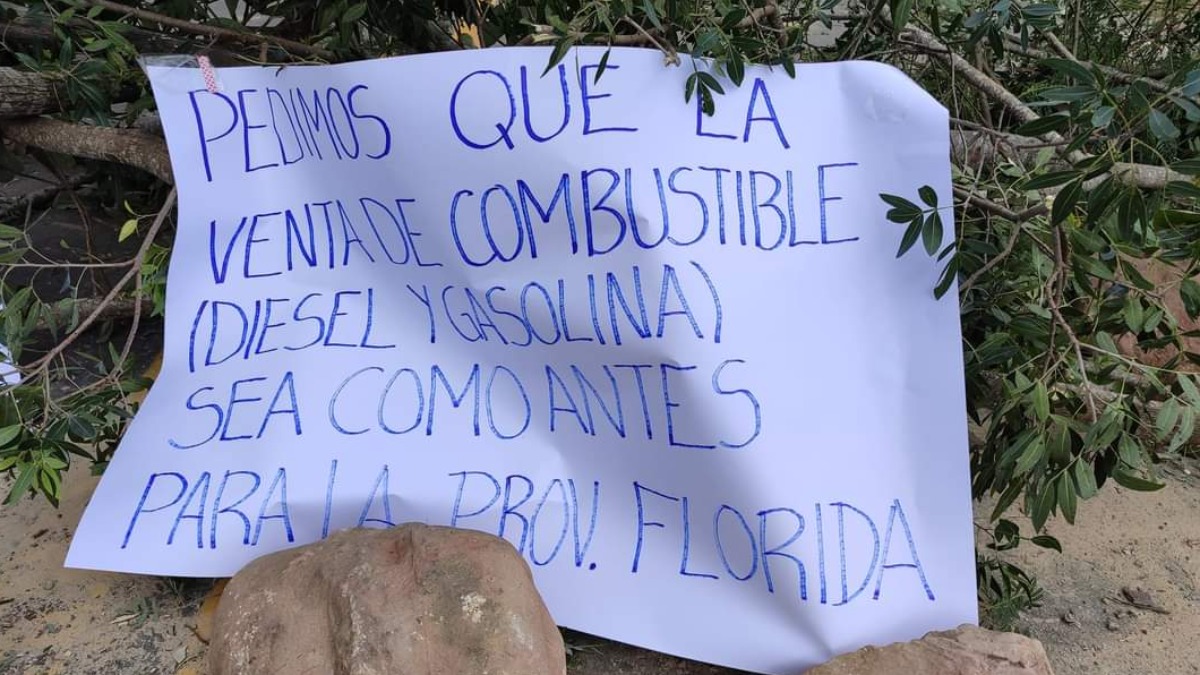 PEDIMOS QUE LA
VENTA DE COMBUSTIBLE
(DIESEL Y GASOLINA)
SEA COMO ANTES
PARA LA PROV. FLORIDA